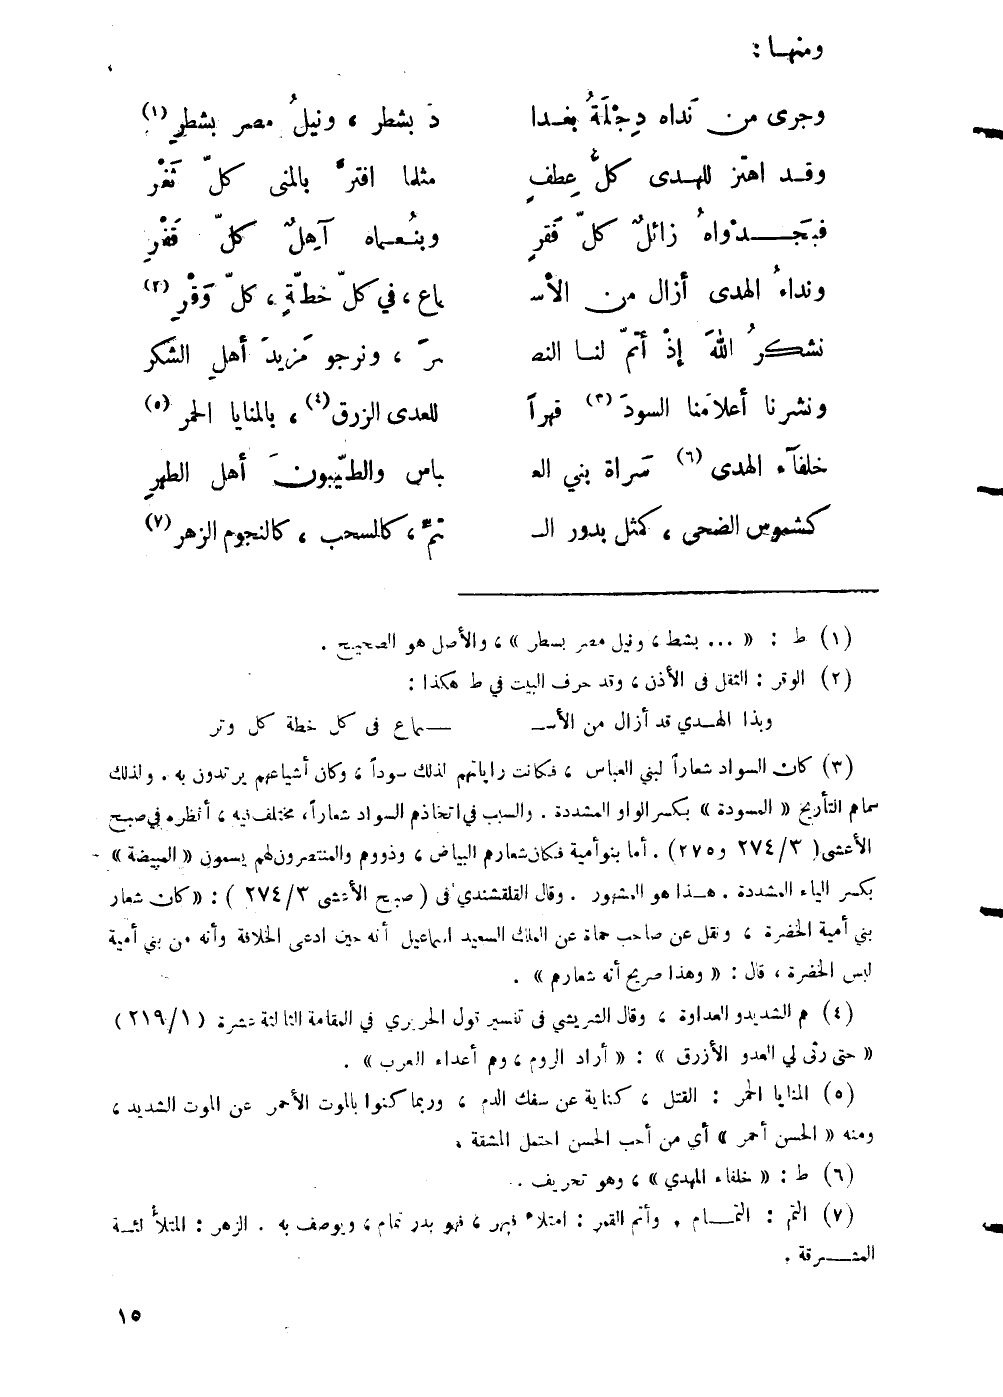 ومنها :
وجرى من نَداه دِجْلَةُ بغدا دَ بشطر ، ونيلُ مصر بشطرِ (١)
وقد اهتز للهدى كلُّ عِطفٍ مثلما افترَّ بالمنى كلّ ثَغْر
فبجَدْواهُ زائلٌ كلّ فَقرٍ وبنُعماه آهِلٌ كلّ قَفْرِ
ونداءُ الهدى أزال من الأسـ ماع ، في كلّ خطّةٍ ، كلّ وَقْرِ (٢)
نشكرُ اللهَ إذْ أتمّ لنا النصـ ـرَ ، ونرجو مَزيدَ أهلِ الشكر
ونشرنا أعلامَنا السودَ (٣) قهراً للعدى الزرق (٤) ، بالمنايا الحمر (٥)
خلفآء الهدى (٦) سَراة بني العـ ـباس والطيّبونَ أهل الطهرِ
كشموس الضحى ، كمثل بدور الـ ـتمّ ، كالسحب ، كالنجوم الزهر (٧)
(١) ط : « ... بشط ، ونيل مصر بسطر » ، والأصل هو الصحيح .
(٢) الوقر : الثقل في الأذن ، وقد حرف البيت في ط هكذا :
وبذا الهـدي قد أزال من الأسـ ـماع في كل خطة كل وتر
(٣) كان السواد شعاراً لبني العباس ، فكانت راياتهم لذلك سوداً ، وكان أشياعهم يرتدون به . ولذلك
سماهم التأريخ « المسودة » بكسر الواو المشددة . والسبب في اتخاذهم السواد شعاراً ، مختلف فيه ، أنظره في صبح
الأعشى ( ٣/٢٧٤ و٢٧٥ ) . أما بنو أمية فكان شعارهم البياض ، وذووهم والمنتصرون لهم يسمون « المبيضة »
بكسر الياء المشددة . هـذا هو المشهور . وقال القلقشندي في ( صبح الأعشى ٣/٢٧٤ ) : « كان شعار
بني أمية الخضرة ، ونقل عن صاحب حماة عن الملك السعيد اسماعيل أنه حين ادعى الخلافة وأنه من بني أمية
لبس الخضرة ، قال : « وهذا صريح أنه شعارهم » .
(٤) هم الشديدو العداوة ، وقال الشريشي في تفسير قول الحريري في المقامة الثالثة عشرة ( ١/٢١٩ )
« حتى رثى لي العدو الأزرق » : « أراد الروم ، وهم أعداء العرب » .
(٥) المنايا الحمر : القتل ، كناية عن سفك الدم ، وربما كنوا بالموت الأحمر عن الموت الشديد ،
ومنه « الحسن أحمر » أي من أحب الحسن احتمل المشقة .
(٦) ط : « خلفاء المهدي » ، وهو تحريف .
(٧) التم : التمـام . وأتم القمر : امتلأ فبهر ، فهو بدر تمام ، ويوصف به . الزهر : المتلألئـة
المشـرقة .
١٥